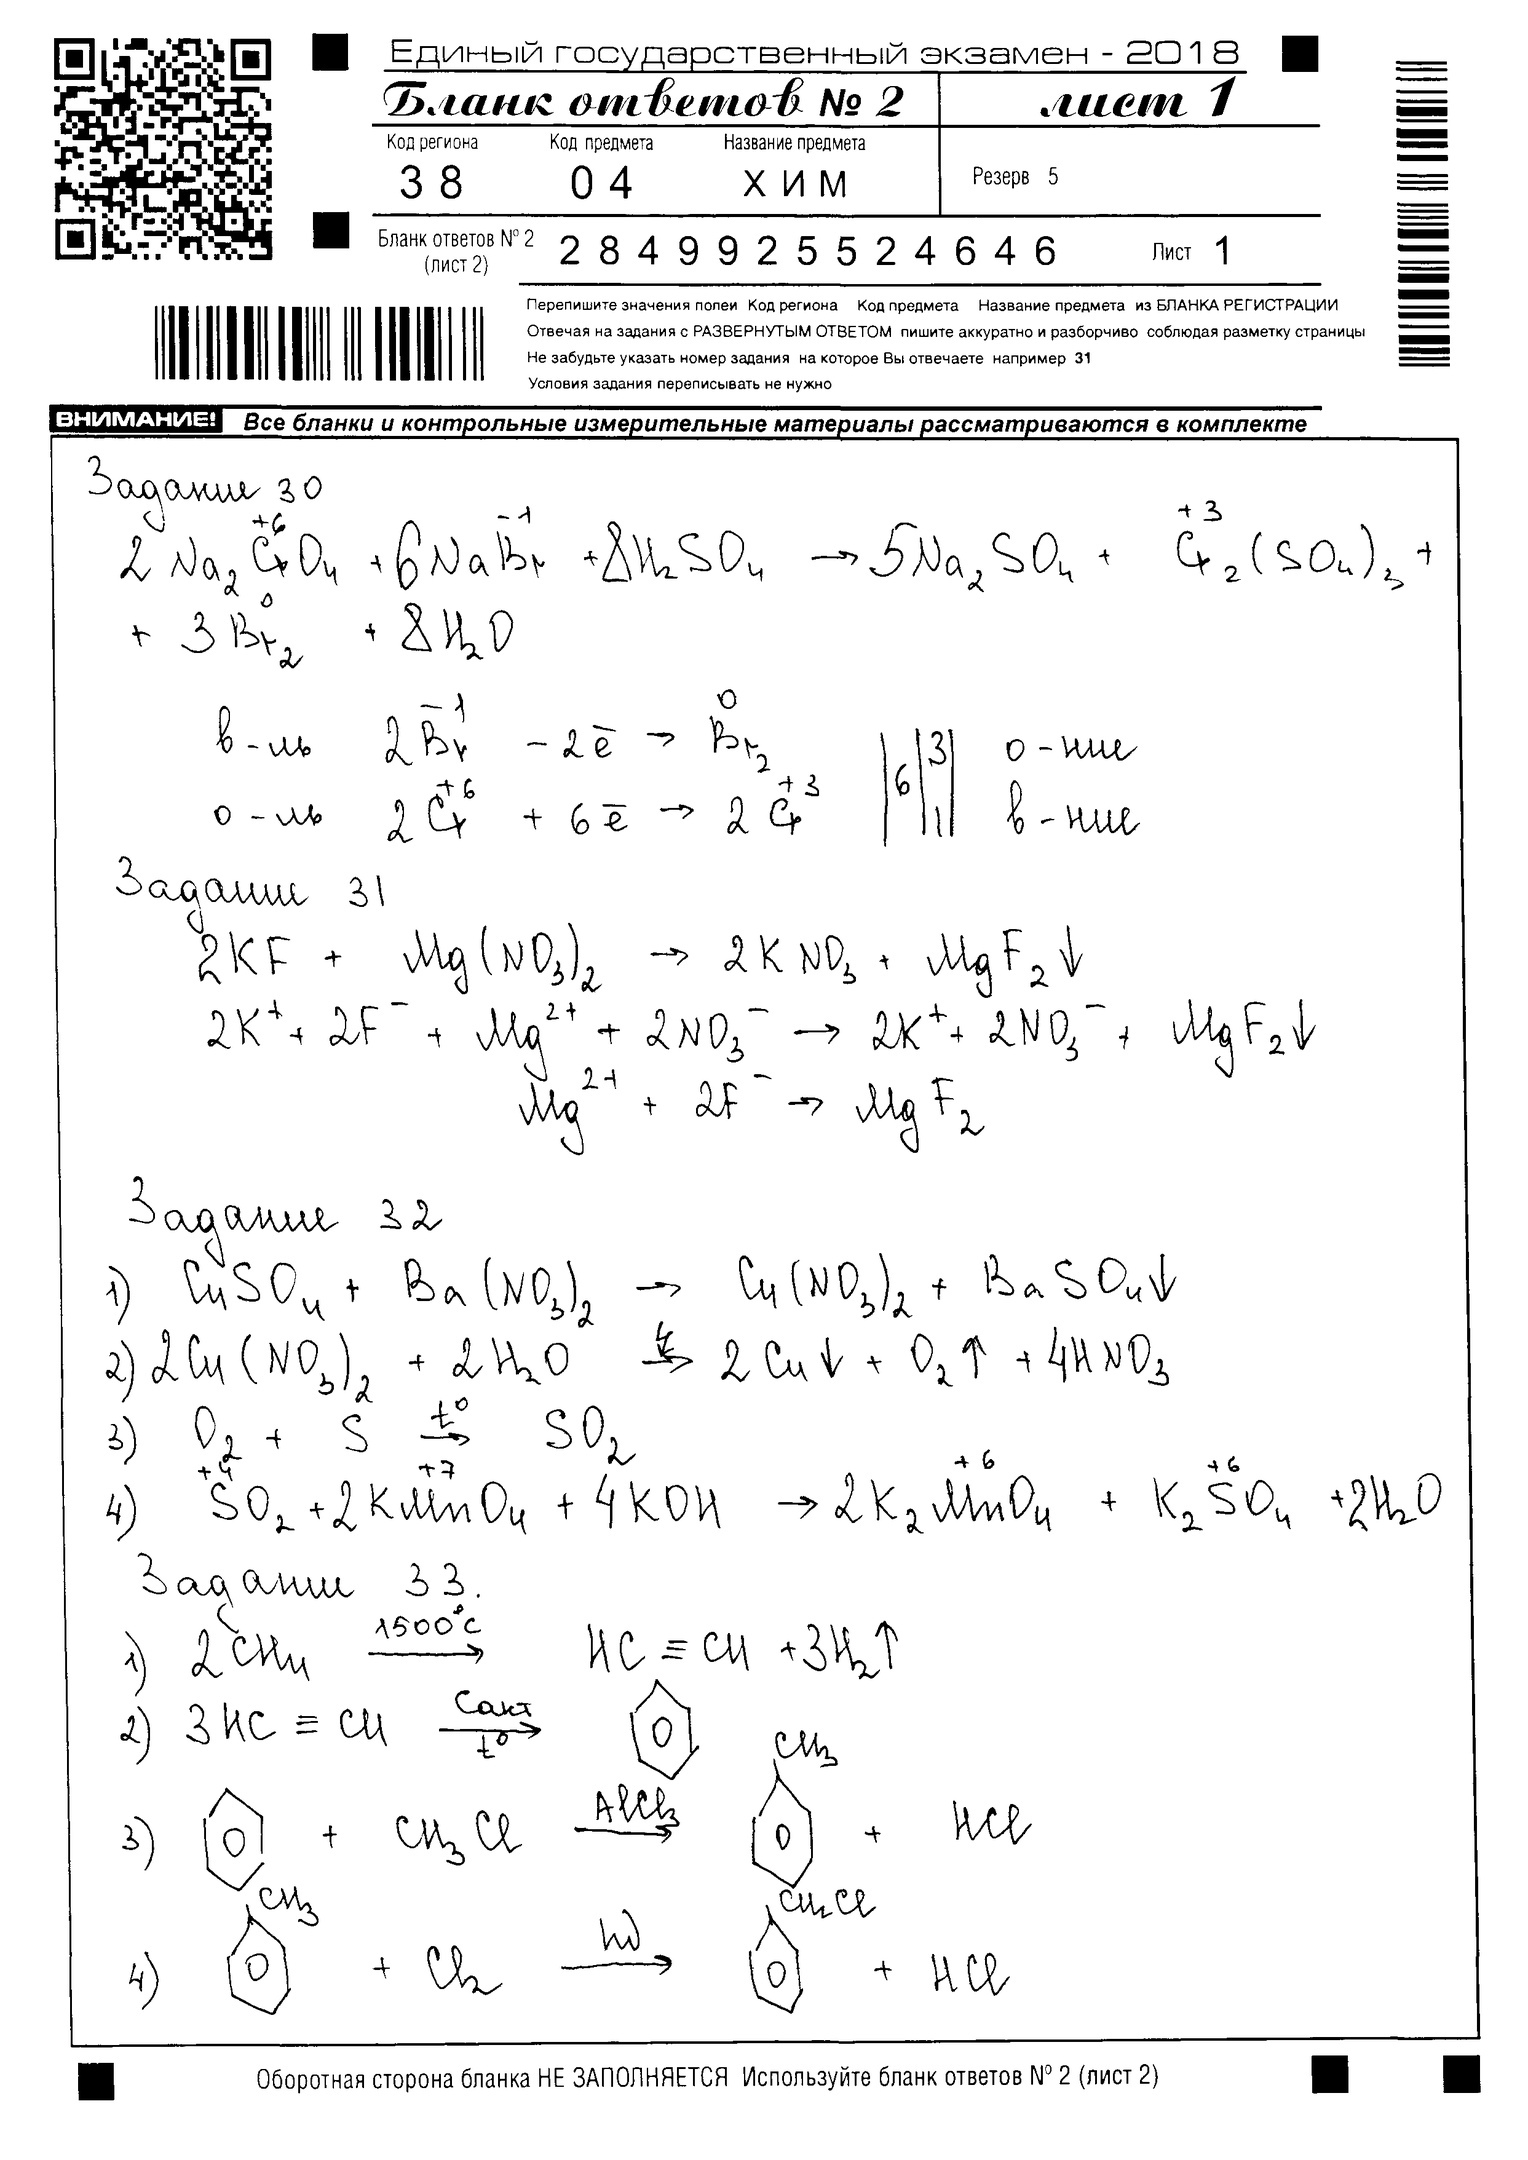 Единый государственный экзамен - 2018
Бланк ответов № 2 лист 1
Код региона Код предмета Название предмета
38 04 ХИМ Резерв 5
Бланк ответов № 2 (лист 2) 2849925524646 Лист 1
Перепишите значения полей Код региона Код предмета Название предмета из БЛАНКА РЕГИСТРАЦИИ
Отвечая на задания с РАЗВЕРНУТЫМ ОТВЕТОМ пишите аккуратно и разборчиво соблюдая разметку страницы
Не забудьте указать номер задания на которое Вы отвечаете например 31
Условия задания переписывать не нужно
ВНИМАНИЕ! Все бланки и контрольные измерительные материалы рассматриваются в комплекте
Задание 30
+6 -1 +3
2Na₂CrO₄ + 6NaBr + 8H₂SO₄ → 5Na₂SO₄ + Cr₂(SO₄)₃ +
0
+ 3Br₂ + 8H₂O
-1 0
в-ль 2Br - 2ē → Br₂ | 6 | 3 | о-ние
+6 +3
о-ль 2Cr + 6ē → 2Cr | | 1 | в-ние
Задание 31
2KF + Mg(NO₃)₂ → 2KNO₃ + MgF₂↓
2K⁺ + 2F⁻ + Mg²⁺ + 2NO₃⁻ → 2K⁺ + 2NO₃⁻ + MgF₂↓
Mg²⁺ + 2F⁻ → MgF₂
Задание 32
1) CuSO₄ + Ba(NO₃)₂ → Cu(NO₃)₂ + BaSO₄↓
2) 2Cu(NO₃)₂ + 2H₂O → 2Cu↓ + O₂↑ + 4HNO₃
3) O₂ + S t° → SO₂
+4 +7 +6 +6
4) SO₂ + 2KMnO₄ + 4KOH → 2K₂MnO₄ + K₂SO₄ + 2H₂O
Задание 33.
1) 2CH₄ 1500°C → HC≡CH + 3H₂↑
2) 3HC≡CH Cакт t° →
CH₃
3) + CH₃Cl AlCl₃ → + HCl
CH₃ CH₂Cl
4) + Cl₂ hν → + HCl
Оборотная сторона бланка НЕ ЗАПОЛНЯЕТСЯ Используйте бланк ответов № 2 (лист 2)